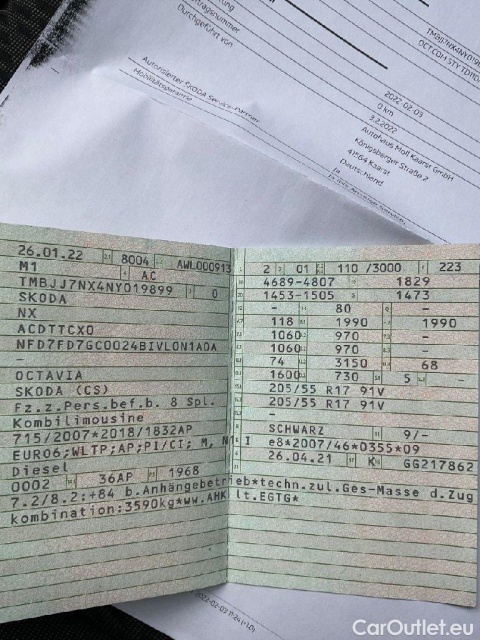 Durchgeführt von
Autorisierter ŠKODA Service-Partner
Mobilitätsgarantie
2022-02-03
0 km
3.2.2022
Autohaus Moll Kaarst GmbH
Königsberger Straße 2
41564 Kaarst
Deutschland
26.01.22 8004 AWL000913
M1 AC
TMBJJ7NX4NY019899 0
SKODA
NX
ACDTTCX0
NFD7FD7GC0024BIVL0N1A0A
–
OCTAVIA
SKODA (CS)
Fz.z.Pers.bef.b. 8 Spl.
Kombilimousine
715/2007*2018/1832AP
EURO6;WLTP;AP;PI/CI; M, N1 I
Diesel
0002 36AP 1968
7.2/8.2:+84 b.Anhängebetrieb*techn.zul.Ges-Masse d.Zug
kombination:3590kg*ww.AHK lt.EGTG*
2 01 110 /3000 223
4689-4807 1829
1453-1505 1473
– 80 –
118 1990 1990
1060 970 –
1060 970 –
74 3150 68
1600 730 5 –
205/55 R17 91V
205/55 R17 91V
–
SCHWARZ 9/–
e8*2007/46*0355*09
26.04.21 K GG217862
CarOutlet.eu